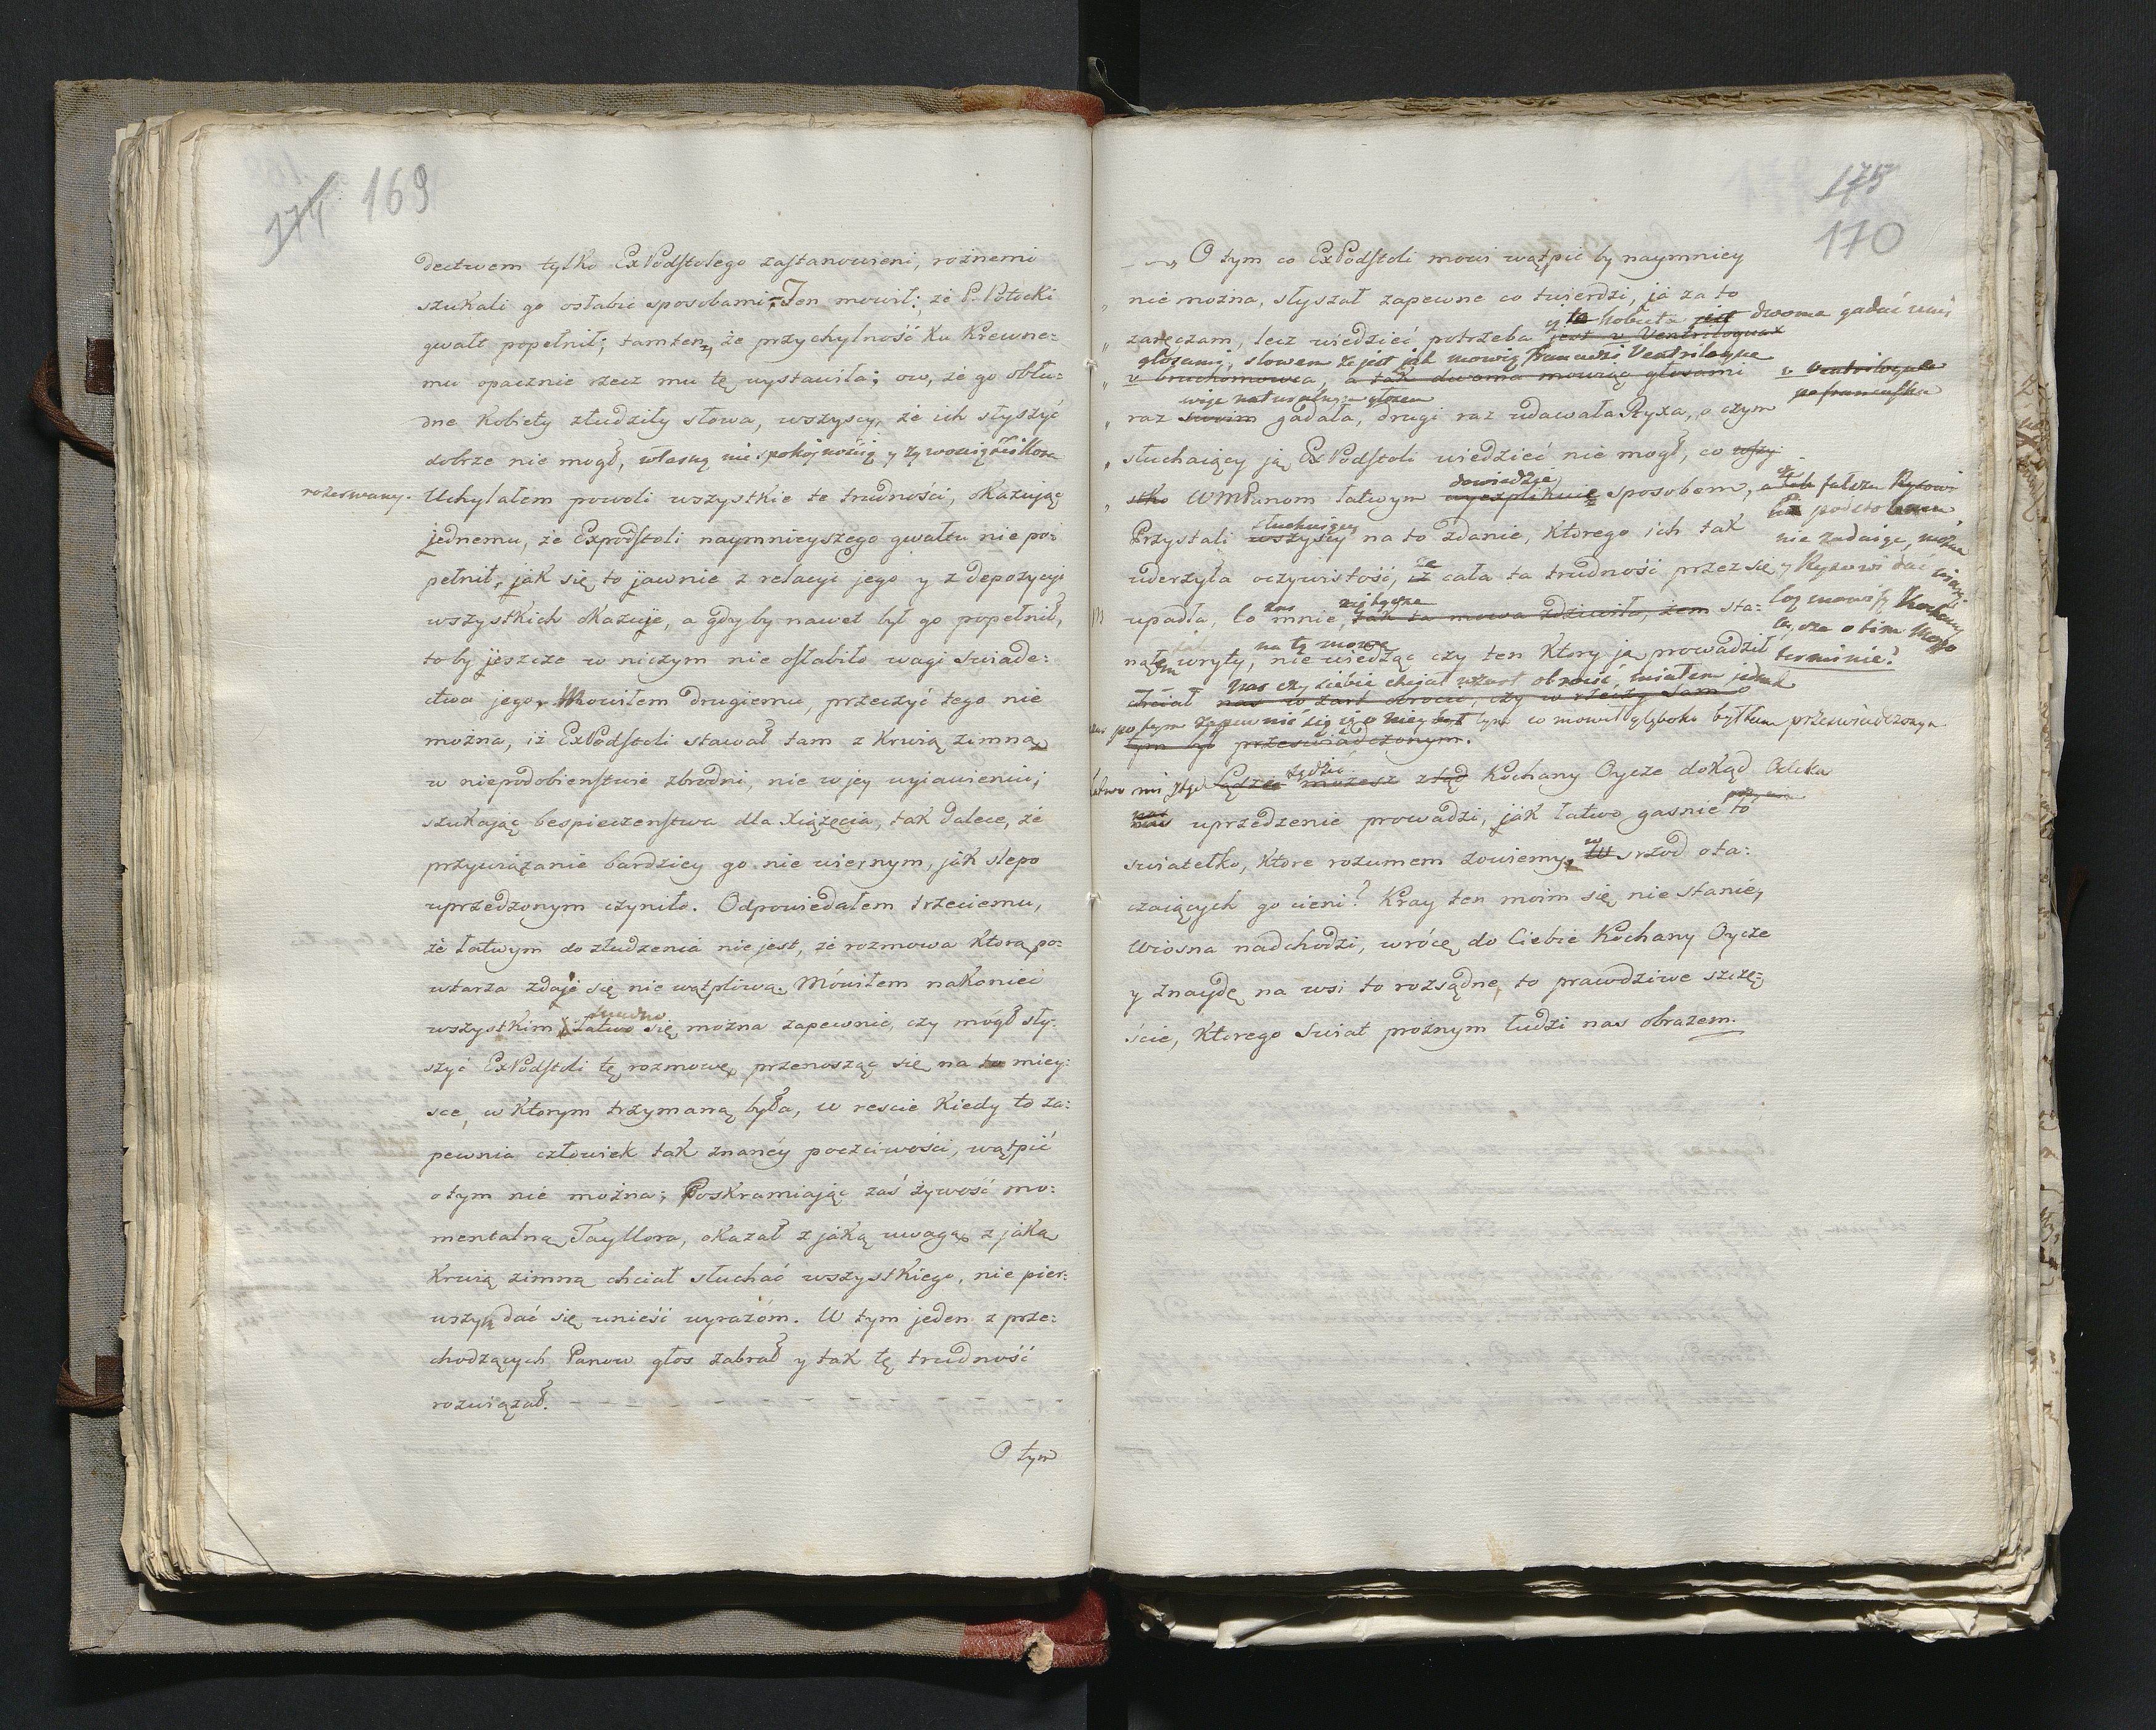 174 169
dectwem tylko ExPodstolego zastanowieni, rożnemi
szukali go osłabić sposobami; Ten mowił; że P. Potocki
gwałt popełnił; tamten, że przychylność ku Krewne=
mu opacznie rzecz mu tę wystawiła; ow, że go obłu=
dne Kobiety złudziły słowa, wszyscy, że ich słyszyć
dobrze nie mogł, własną nie spokojnością y żywością Teillora
rozerwany. Uchylałem powoli wszystkie te trudności, okazując
jednemu, że Expodstoli naymnieyszego gwałtu nie po=
pełnił, jak się to jawnie z relacyi jego y z depozycyi
wszystkich okazuje, a gdyby nawet był go popełnił,
to by jeszcze w niczym nie osłabiło wagi swiade=
ctwa jego, Mowiłem drugiemu, przeczyć tego nie
można, iż ExPodstoli stawał tam z Krwią zimną
w niepodobieństwie zbrodni, nie w jey wyiawieniu;
szukając bespieczenstwa dla Xiążęcia, tak dalece, że
przywiązanie bardziey go nie wiernym, jak slepo
uprzedzonym czyniło. Odpowiedałem trzeciemu,
że łatwym do złudzenia nie jest, że rozmowa Ktorą po=
wtarza zdaje się nie wątpliwa. Mówiłem nakoniec
trudno
wszystkim łatwo się można zapewnić, czy mógł sły=
szyć ExPodstoli tę rozmowę, przenosząc się na to miey=
sce, w Ktorym trzymaną była, w rescie Kiedy to za=
pewnia człowiek tak znanéy poczciwości, wątpić
o tym nie można; Poskramiając zaś żywość mo=
mentalną Tayllora, okazał z jaką uwagą, z jaką
Krwią zimną chciał słuchać wszystkiego, nie pier=
wszy dać się unieść wyrazóm. W tym jeden z prze=
chodzących Panow głos zabrał y tak tę trudność
rozwiązał. - - - - - - - - - - - - -
O tym
175
170
O tym co ExPodstoli mowi wątpić by naymniey
nie można, słyszał zapewne co twierdzi, ja za to
iż ta kobieta jest dwoma gadać umi
zaręczam, lecz wiedzieć potrzeba jest v Ventriloquax
głosami, słowem że jest jak mowią Francuzi Ventriloque
v bruchomowca, a tak dwoma mowiąc głosami v Ventriloquale
po francusku
więc naturalnym głosem
raz swoim gadała, drugi raz udawała Ryxa, o czym
słuchaiący ją ExPodstoli wiedzieć nie mogł, co wszy=
dowiedzie
stko WMPanom łatwym wyexplikuię sposobem, a tak fałszu
słuchaiący
Przystali wszyscy na to zdanie, Ktorego ich tak nie zadaiąc, można
że
uderzyła oczywistość, iż cała ta trudność przez się y Ryxowi dać
zas
upadła, co mnie, tak ta mowa zdziwiła, żem sta=
na tę mowę
nąłem wryty, nie wiedząc czy ten Ktory ją prowadził
nas czy siebie chciał w żart obrocić, miałem jednak
chciał nas w żart obrocić, czy w rzeczy sam o
tym co mowił głęboko był tem przeswiadczonym
tym był przeswiadczonym.
sądzić
Sądzić możesz ztąd Kochany Oycze dokąd
nas uprzedzenie prowadzi, jak łatwo gasnie to
swiatełko, Ktore rozumem zowiemy, w srzod ota=
czaiących go cieni? Kray ten moim się nie stanie,
Wiosna nadchodzi, wrócę do Ciebie Kochany Oycze
y znaydę na wsi to rozsądne, to prawdziwe szczę=
ście, Ktorego swiat prożnym łudzi nas obrazem.